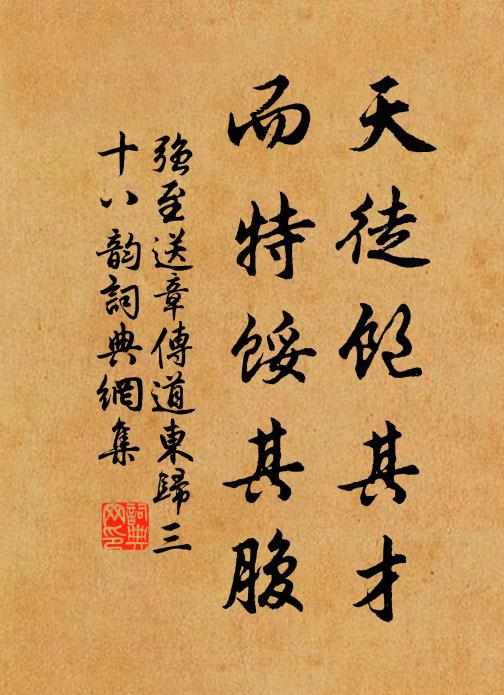 天徒飽其才
而特餒其腹
強至送章傳道東歸三
十八韵詞典網集
詞典
网印